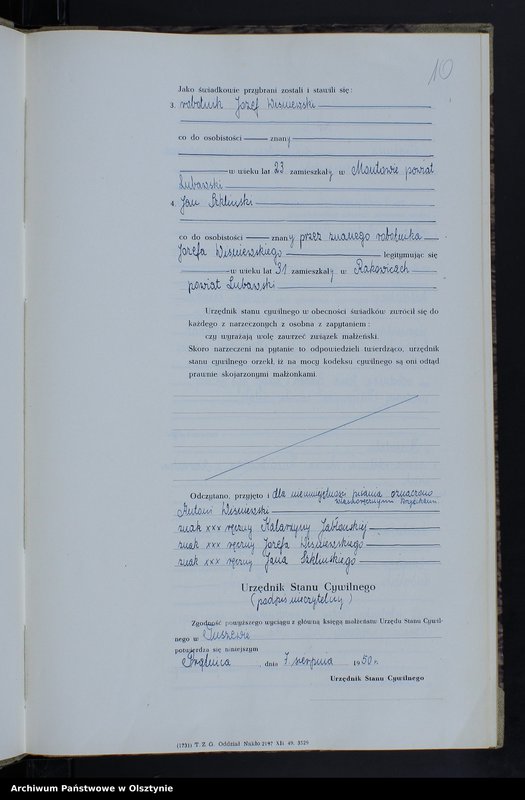 10
Jako świadkowie przybrani zostali i stawili się:
3. robotnik Józef Wiśniewski
co do osobistości znany
w wieku lat 23 zamieszkały w Montowie powiat
Lubawski
4. Jan Szkliński
co do osobistości znany przez znanego robotnika
Józefa Wiśniewskiego legitymując się
w wieku lat 31 zamieszkały w Rakowicach
powiat Lubawski
Urzędnik stanu cywilnego w obecności świadków zwrócił się do
każdego z narzeczonych z osobna z zapytaniem:
czy wyrażają wolę zawrzeć związek małżeński.
Skoro narzeczeni na pytanie to odpowiedzieli twierdząco, urzędnik
stanu cywilnego orzekł, iż na mocy kodeksu cywilnego są oni odtąd
prawnie skojarzonymi małżonkami.
Odczytano, przyjęto i dla nieumiejętności pisania oznaczono
własnoręcznymi krzyżkami
Antoni Wiśniewski
znak xxx ręczny Katarzyny Jabłońskiej
znak xxx ręczny Józefa Wiśniewskiego
znak xxx ręczny Jana Szklińskiego
Urzędnik Stanu Cywilnego
(podpis nieczytelny)
Zgodność powyższego wyciągu z główną księgą małżeństw Urzędu Stanu Cywil-
nego w Tuszewie
potwierdza się niniejszym
Prątnica, dnia 7 sierpnia 1950 r.
Urzędnik Stanu Cywilnego
(1731) T. Z. G. Oddział Nakło 2197 XII 49. 3529
Archiwum Państwowe w Olsztynie